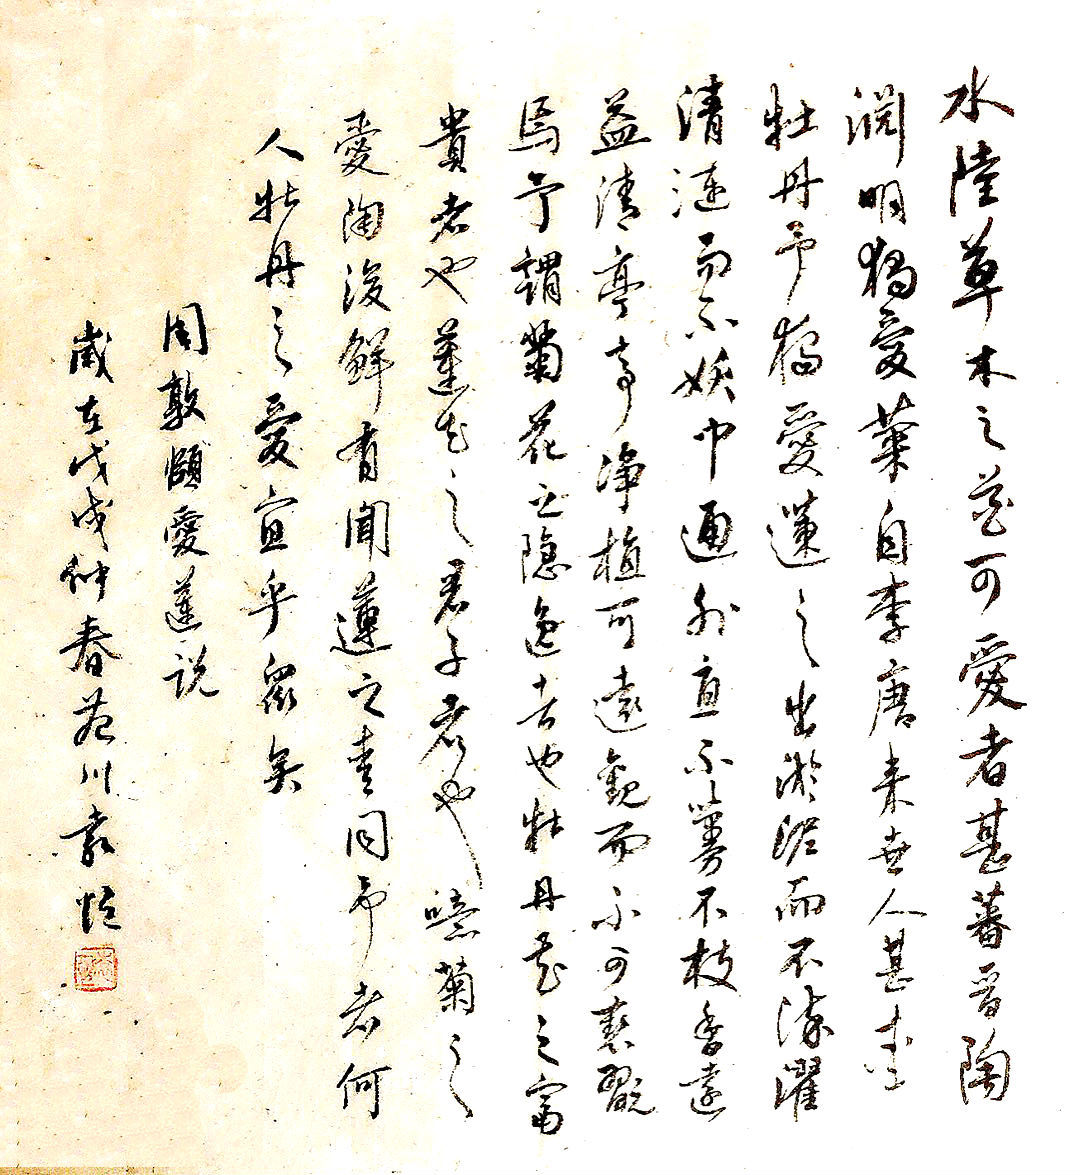 水陸草木之花可愛者甚蕃晉陶
渊明獨愛菊自李唐来世人甚愛
牡丹予獨愛蓮之出淤泥而不染濯
清漣而不妖中通外直不蔓不枝香遠
益清亭亭净植可遠觀而不可褻翫
焉予謂菊花之隐逸者也牡丹花之富
貴者也蓮花之君子者也噫菊之
愛陶後鮮有聞蓮之愛同予者何
人牡丹之愛宜乎眾矣
周敦頤愛蓮説
歲在戊戌仲春川袁恒